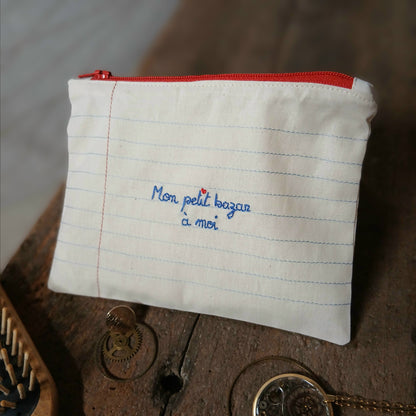 Mon petit bazar
à moi